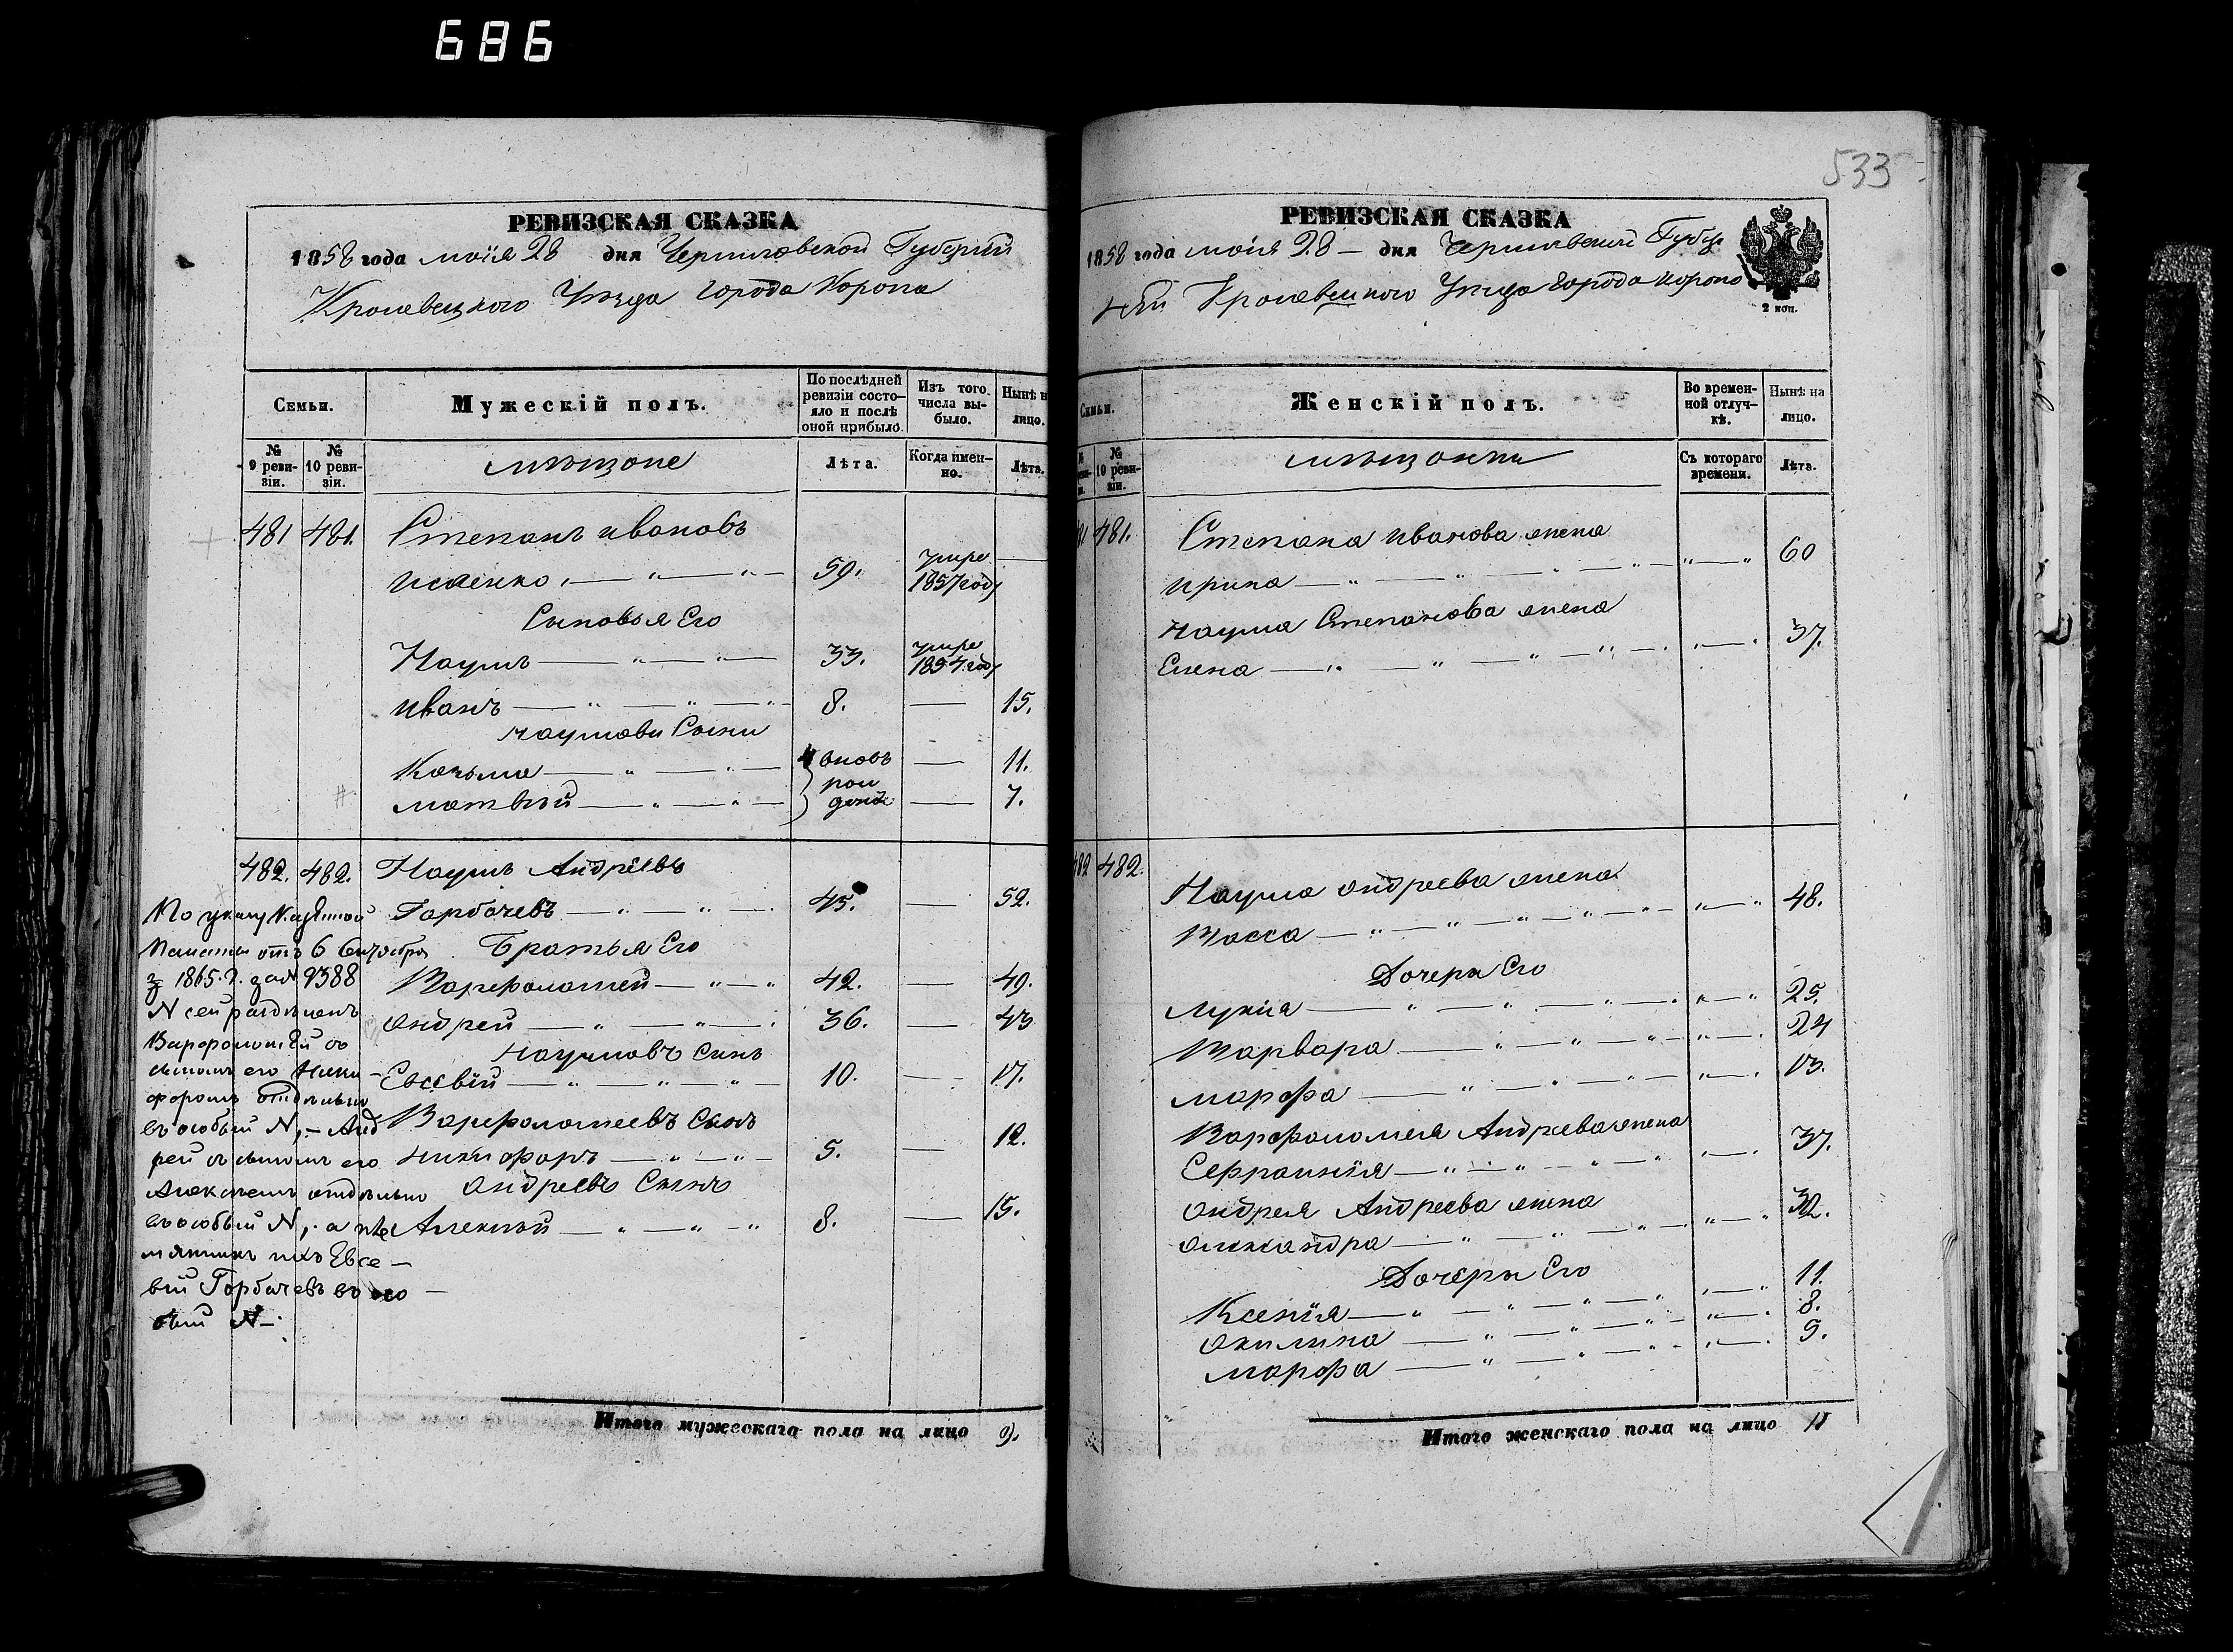 686
РЕВИЗСКАЯ СКАЗКА
1858 года маія 28 дня Черниговской Губерніи
Кролевецкого Уѣзда Города Коропа
Семьи.
Мужескій полъ.
По послѣдней ревизіи состояло и послѣ оной прибыло.
Изъ того числа выбыло.
Нынѣ на лицо.
№ 9 ревизіи.
№ 10 ревизіи.
мѣщане
Лѣта.
Когда именно.
Лѣта.
481 481. Степанъ Ивановъ
Исаенко 59. умре 1857 году
Сыновья Его
Наумъ 33. умре 1857 году
Иванъ 8. 15.
Наумови Сыни
Козьма вновь 11.
Матвѣй рожденъ 7.
482. 482. Наумъ Андреевъ
Горбачевъ 45. 52.
Братья Его
Варфоломей 42. 49.
Андрей 36. 43
Наумовъ Синъ
Евсевій 10. 17.
Варфоломеевъ Сынъ
Никифоръ 5. 12.
Андреевъ Синъ
Алексѣй 8. 15.
По указу Казенной
Палаты отъ 6 Сентября
1865 г. за N 9388
N сей раздѣленъ
Варфоломей съ
сыномъ его Ники-
форомъ отдѣльно
въ особый N, - Анд
рей съ сыномъ его
Алексѣемъ отдѣльно
въ особый N, а пле
мянникъ ихъ Евсе-
вій Горбачевъ въ осо-
бый N
Итого мужескаго пола на лицо 9.
533
РЕВИЗСКАЯ СКАЗКА
1858 года маія 28 дня Черниговской Губер
ніи Кролевецкого Уѣзда Города Коропа
2 коп.
Семьи.
Женскій полъ.
Во временной отлучкѣ.
Нынѣ на лицо.
№ 10 ревизіи.
мѣщанки
Съ котораго времени.
Лѣта.
481. Степана Иванова жена
Ирина 60
Наума Степанова жена
Елена 37.
482 482. Наума Андреева жена
Васса 48.
Дочери Его
Лукія 25.
Варвара 24
Марфа 13.
Варфоломея Андреева жена
Сефрамнія 37.
Андрея Андреева жена
Александра 32.
Дочери Его
Ксенія 11.
Акилина 8.
Марфа 5.
Итого женскаго пола на лицо 11